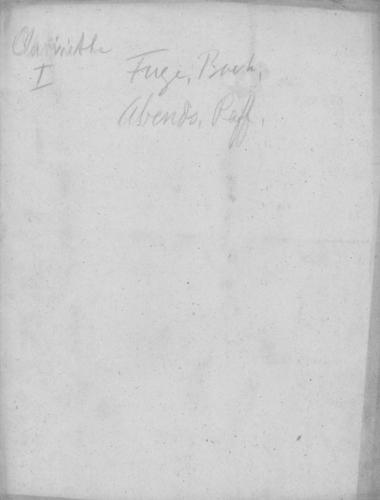 Clarinette
I
Fuge, Bach,
Abends, Raff.